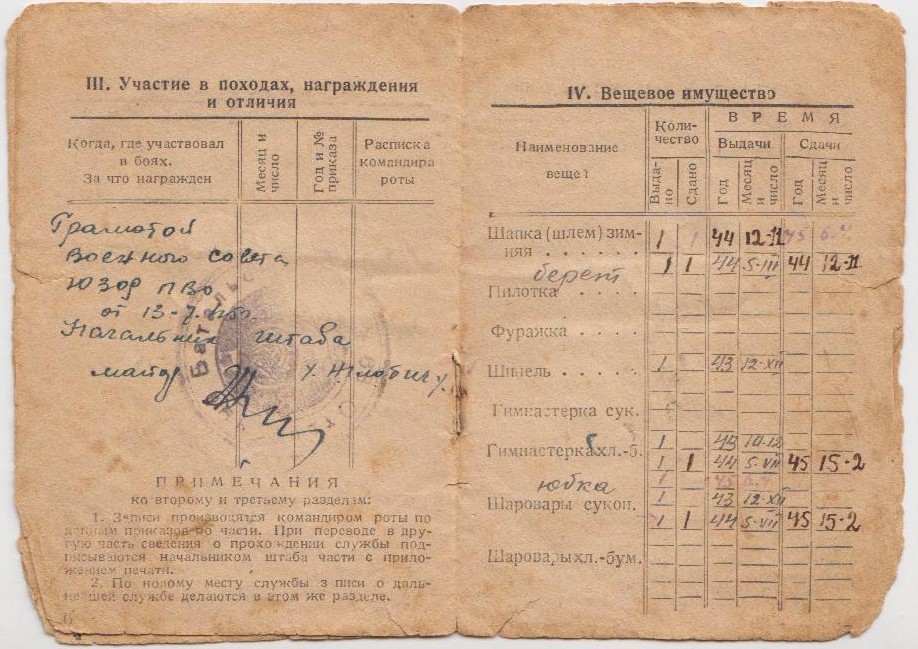 III. Участие в походах, награждения
и отличия
Когда, где участвовал
в боях.
За что награжден
Месяц и
число
Год и №
приказа
Расписка
командира
роты
Грамотой
Военного совета
ПВО
от 13-
Начальник штаба
майор
ПРИМЕЧАНИЯ
ко второму и третьему разделам:
1. Записи производятся командиром роты по
данным приказов по части. При переводе в дру-
гую часть сведения о прохождении службы под-
писываются начальником штаба части с прило-
жением печати.
2. По новому месту службы з писи о даль-
нейшей службе делаются в этом же разделе.
6
IV. Вещевое имущество
Наименование
вещей
Коли-
чество
ВРЕМЯ
Выдачи
Сдачи
Выда-
но
Сдано
Год
Месяц
и
число
Год
Месяц
и
число
Шапка (шлем) зим- 1 1 44 12-11 45
няя . . . . . 1 1 44 5-III 44 12-11
берет
Пилотка . . . .
Фуражка . . . .
Шинель . . . . . 1 43 12-XII
Гимнастерка сук.
Гимнастерка хл.-б. 1
1 1 44 5-VII 45 15-2
юбка 1 45
Шаровары сукон. 1 43 12-XII
1 1 44 5-VII 45 15-2
Шаровары хл.-бум.
7